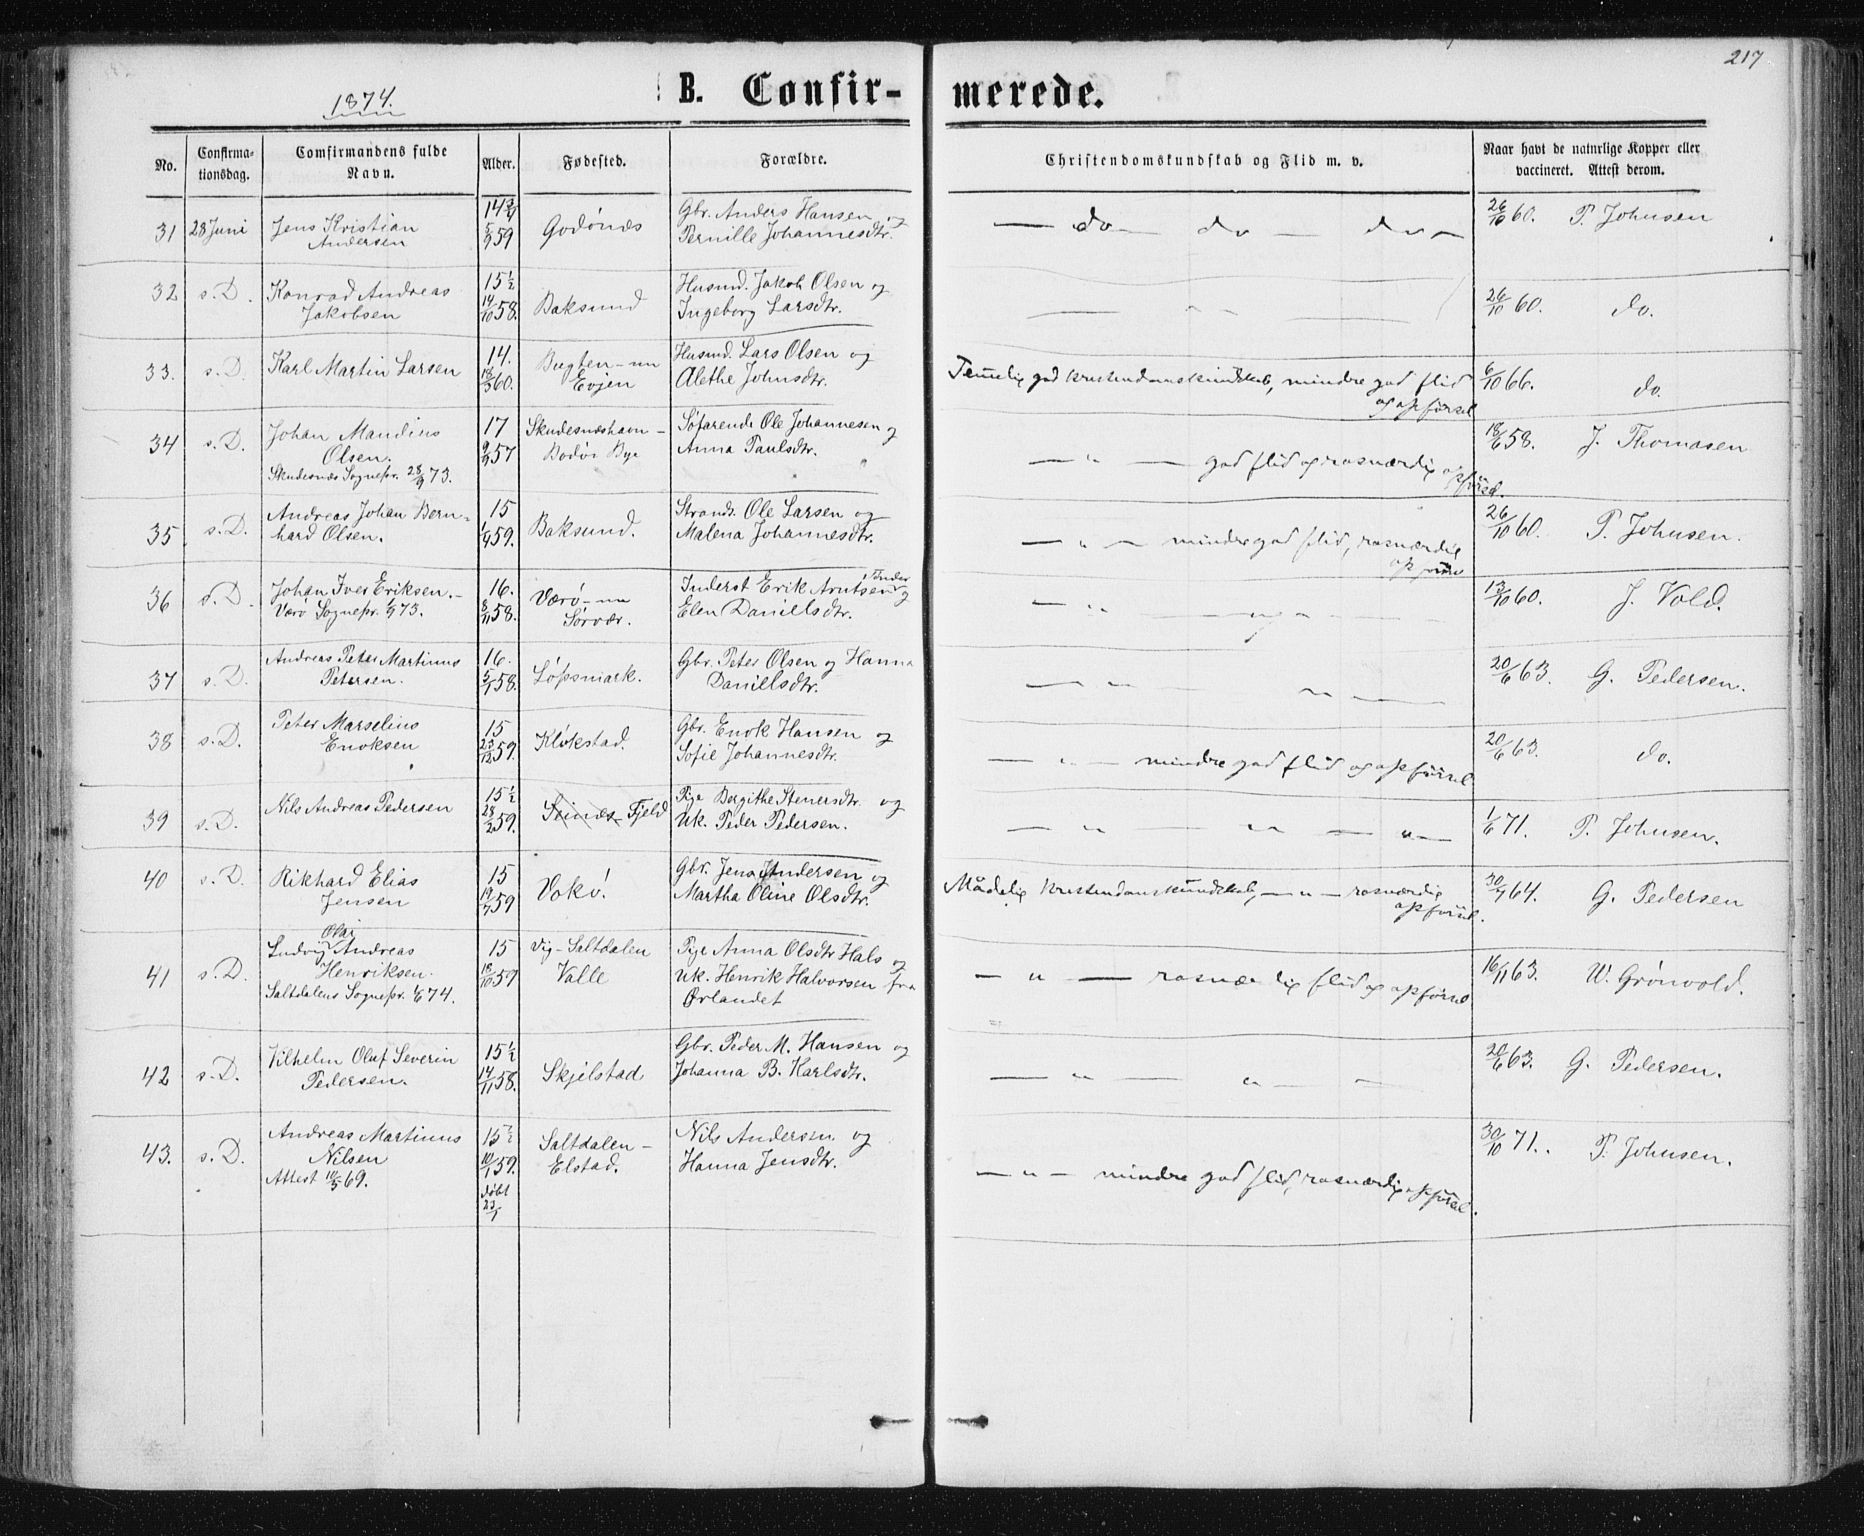 217
1874.
B. Confir- merede.
No. Confirma- tionsdag. Comfirmandens fulde Navn. Alder. Fødested. Forældre. Christendomskundskab og Flid m. v. Naar havt de naturlige Kopper eller vaccineret. Attest derom.
31 28 Juni Jens Kristian Andersen 14 3/4 5/9 59 Godönes Gbr. Anders Hansen og Pernille Johannesdtr. — do — do — do — 26/10 60. P. Johnsen
32 s. D. Konrad Andreas Jakobsen 15 1/2 14/10 58. Baksund Husmd. Jakob Olsen og Ingeborg Larsdtr. — " — 26/10 60. do.
33. s. D. Karl Martin Larsen 14. 18/3 60. Bugten - nu Evjen Husmd. Lars Olsen og Alethe Johnsdtr. Temelig god kristendomskundskab, mindre god flid og opförsel 6/10 66. do.
34 s. D. Johan Mandius Olsen. Skudesnæs Sognepr. 28/9 73. 17 9/9 57 Skudesnæshavn - Bodö Bye Söfarende Ole Johannesen og Anna Paulsdtr. — " — god flid og rosværdig opförsel. 18/6 58. J. Thomasen
35 s. D. Andreas Johan Bern- hard Olsen. 15 1/9 59. Baksund. Strands. Ole Larsen og Malena Johannesdtr. — " — mindre god flid, rosværdig opförsel 26/10 60. P. Johnsen.
36 s. D. Johan Iver Eriksen. - Værö Sognepr. 73. 16. 8/11 58. Værö - nu Sörvær. Inderst Erik Arntsen og Elen Daniellsdtr. — " — " — 13/10 60. J. Vold.
37 s. D. Andreas Peter Martinus Petersen. 16. 5/1 58. Löpsmark. Gbr. Peter Olsen og Hanna Daniellsdtr. — " — " — 20/6 63. G. Pedersen.
38 s. D. Peter Marselius Enoksen 15 23/12 59. Klökstad. Gbr. Enok Hansen og Sofie Johannesdtr. — " — mindre god flid og opförsel 20/6 63. do.
39 s. D. Nils Andreas Pedersen 15 1/2 28/2 59. Fjeld Pige Bergithe Stenersdtr. og Uk. Peder Pedersen. — " — " — " — 1/6 71. P. Johnsen.
40 s. D. Rikhard Elias Jensen 15 19/7 59 Vokö. Gbr. Jens Andersen og Martha Oline Olsdtr. Mådelig kristendomskundskab, — " — rosværdig opförsel. 30/7 64. G. Pedersen
41 s. D. Ludvig Olai Andreas Henriksen. Saltdalens Sognepr. 74. 15 18/10 59 Vig - Saltdalen Valle Pige Anna Olsdtr Hals og Uk. Henrik Halvorsen fra Ørlandet — " — rosværdig flid og opförsel 16/11 63. W. Grönvold.
42 s. D. Vilhelm Oluf Severin Pedersen. 15 1/2 14/11 58. Skjelstad Gbr. Peder M. Hansen og Johanna B. Karlsdtr. — " — " — 20/6 63. G. Pedersen.
43. s. D. Andreas Martinus Nilsen Attest 10/5 69. 15 1/2 10/1 59. döbt 23/1 Saltdalen - Elstad. Nils Andersen og Hanna Jensdtr. — " — mindre god flid, rosværdig opförsel. 30/10 71. P. Johnsen.